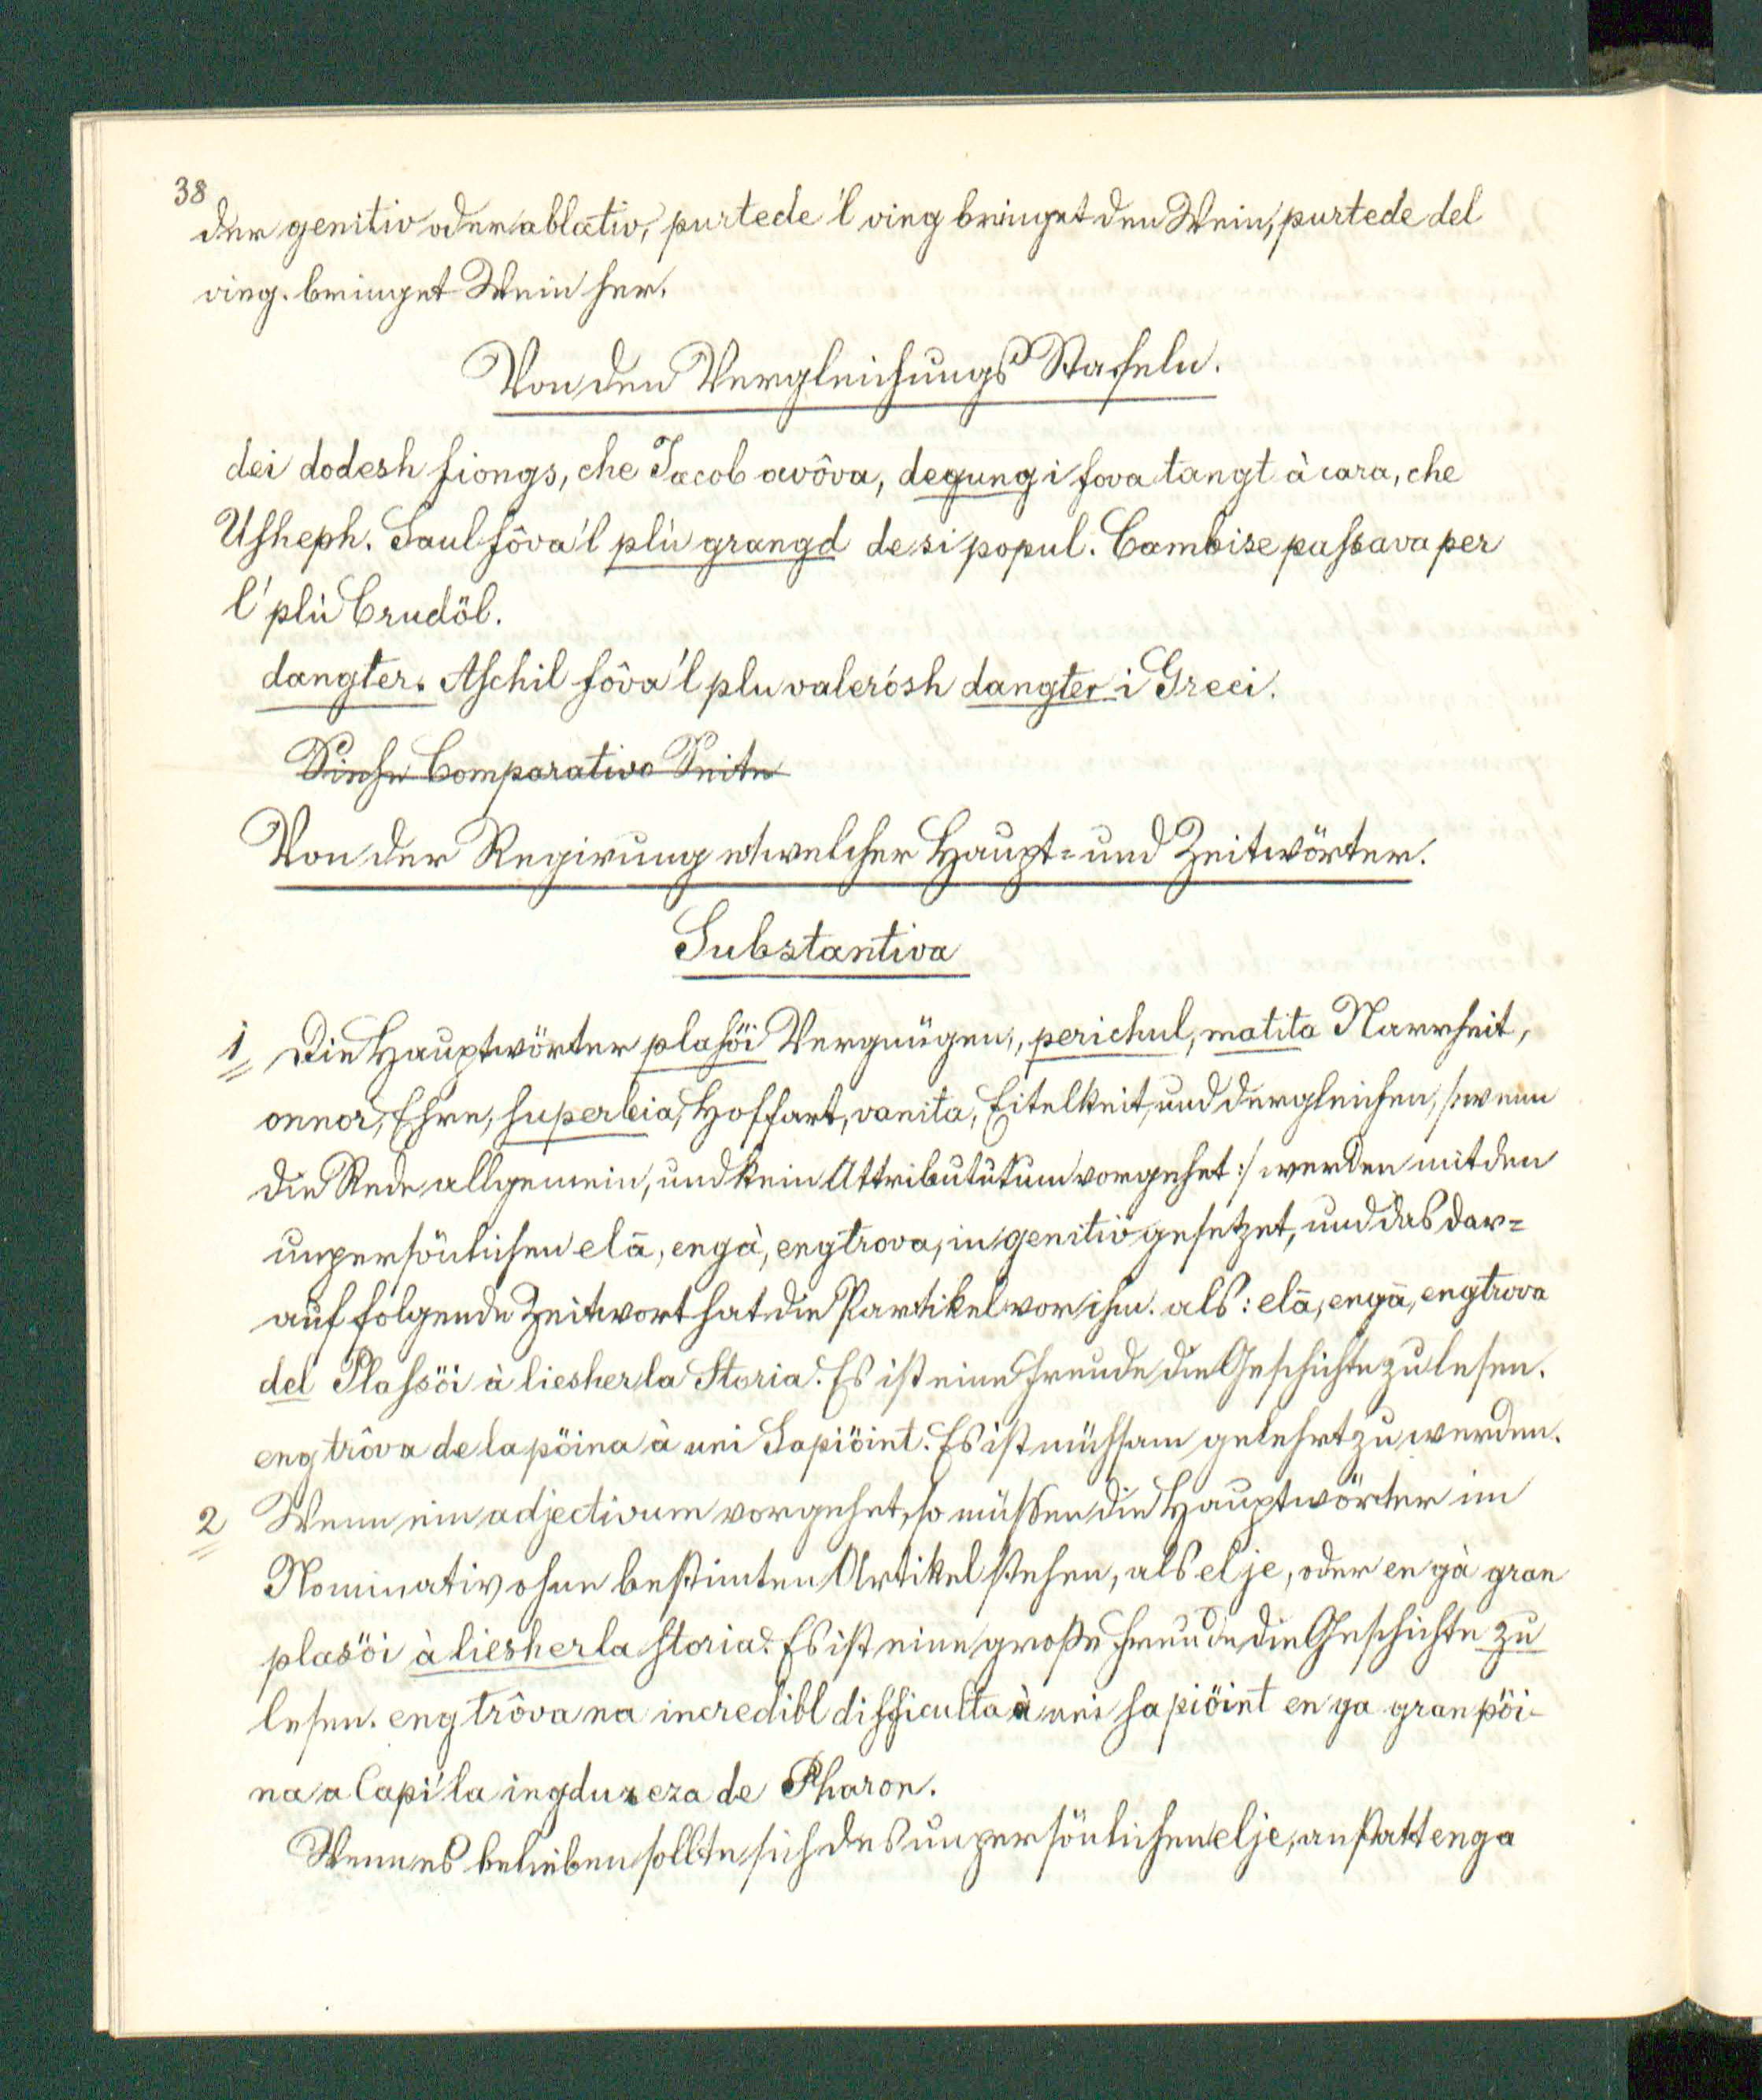 38
der genitiv oder ablativ, purtede 'l ving bringet den Wein, purtede del
ving. bringet Wein her.
Von den Vergleichungs Stafeln.
dei dodesh fiongs, che Jacob avôva, degung i fova tangt à cara, che
Usheph. Saul fôva 'l plù grangd de si popul. Cambise passava per
l' plù Crudöl.
dangter. Aschil fôva 'l plu valerósh dangter i Greci.
Siehe Comparativo Seite
Von der Regirung etwelcher Haupt= und Zeitwörter.
Substantiva
1 Die Hauptwörter plasöi Vergnügen, perichul, matita Narrheit,
onnor, Ehre, superbia, Hoffart, vanita, Eitelkeit, und dergleichen, /: wenn
die Rede allgemein, und kein Attributütum vorgehet :/ werden mit den
unpersönlichen elā, engà, engtrova, in genitiv gesetzet, und das dar=
auf folgende Zeitwort hat die Partikel vor ihm. als: elā, engā, engtrova
del Plassöi à liesher la Storia. Es ist eine Freude die Geschichte zu lesen.
eng trôva de la pöina à uni Sapiöint. Es ist mühsam gelehrt zu werden.
2 Wenn ein adjectivum vorgehet, so müßen die Hauptwörter im
Nominativ ohne bestimten Artikel stehen, als el je, oder en gà gran
plasöi à liesher la storia. Es ist eine große Freude die Geschichte zu
lesen. eng trôva na incredibl difficulta à uni sapiöint en ga gran pöi-
na a Capi 'la ingdureza de Pharon.
Wenn es belieben sollte sich des unpersönlichen el je, anstatt enga